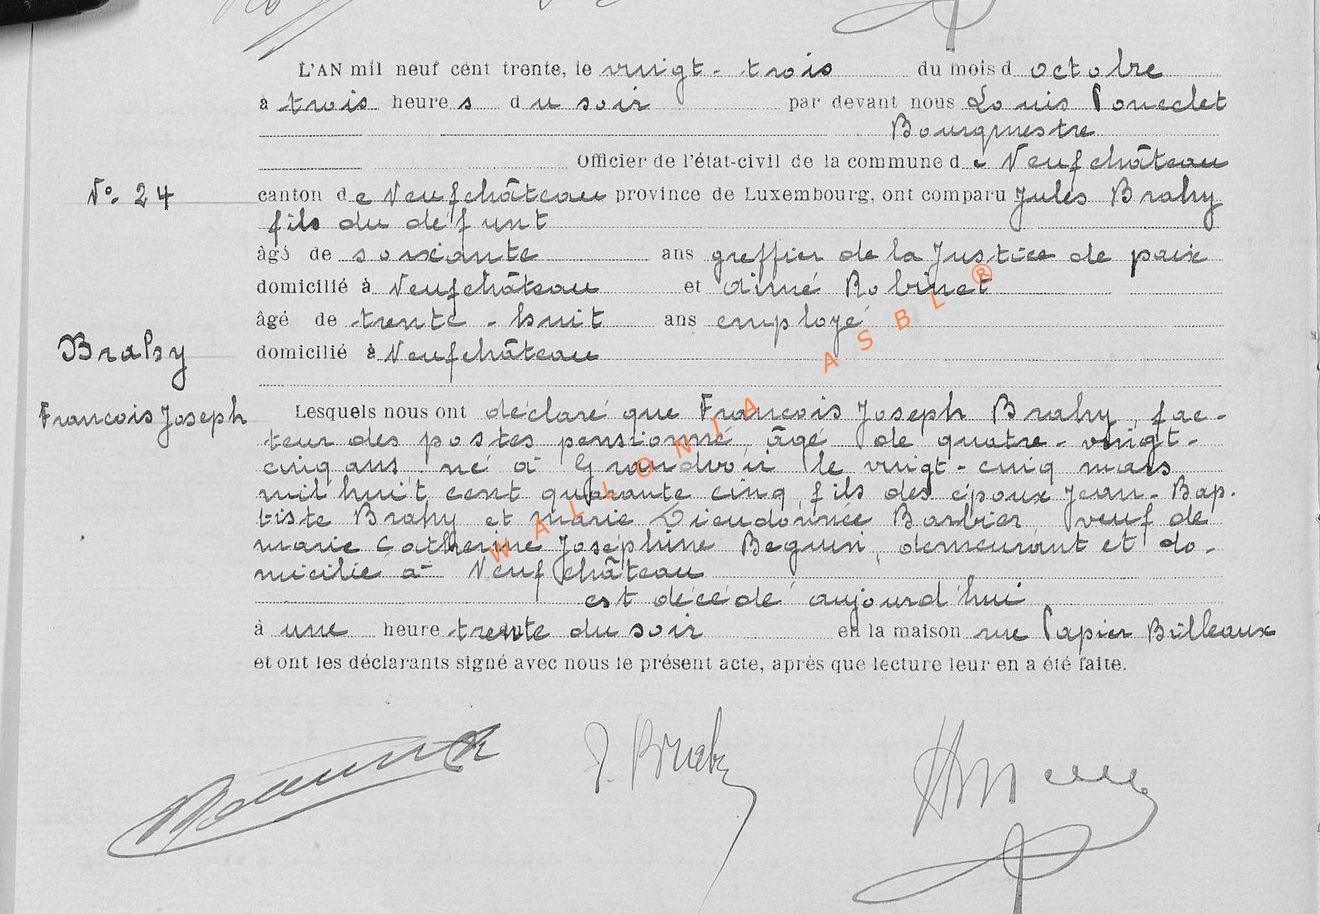 L'AN mil neuf cent trente, le vingt-trois du mois d octobre
à trois heures du soir par devant nous Louis Poncelet
Bourgmestre
Officier de l'état-civil de la commune de Neufchâteau
N° 24
canton de Neufchâteau province de Luxembourg, ont comparu Jules Brahy
fils du défunt
âgé de soixante ans greffier de la Justice de paix
domicilié à Neufchâteau et Aimé Robinet
âgé de trente-huit ans employé
Brahy
domicilié à Neufchâteau
François Joseph
Lesquels nous ont déclaré que François Joseph Brahy, fac-
teur des postes pensionné, âgé de quatre-vingt-
cinq ans né à Grandvoir le vingt-cinq mars
mil huit cent quarante cinq, fils des époux Jean-Bap-
tiste Brahy et Marie Dieudonnée Barbier, veuf de
Marie Catherine Joséphine Beguin, demeurant et do-
micilié à Neufchâteau
est décédé aujourd'hui
à une heure trente du soir en la maison rue Papier Billeaux
et ont les déclarants signé avec nous le présent acte, après que lecture leur en a été faite.
J. Brahy
WALLONIA ASBL ®